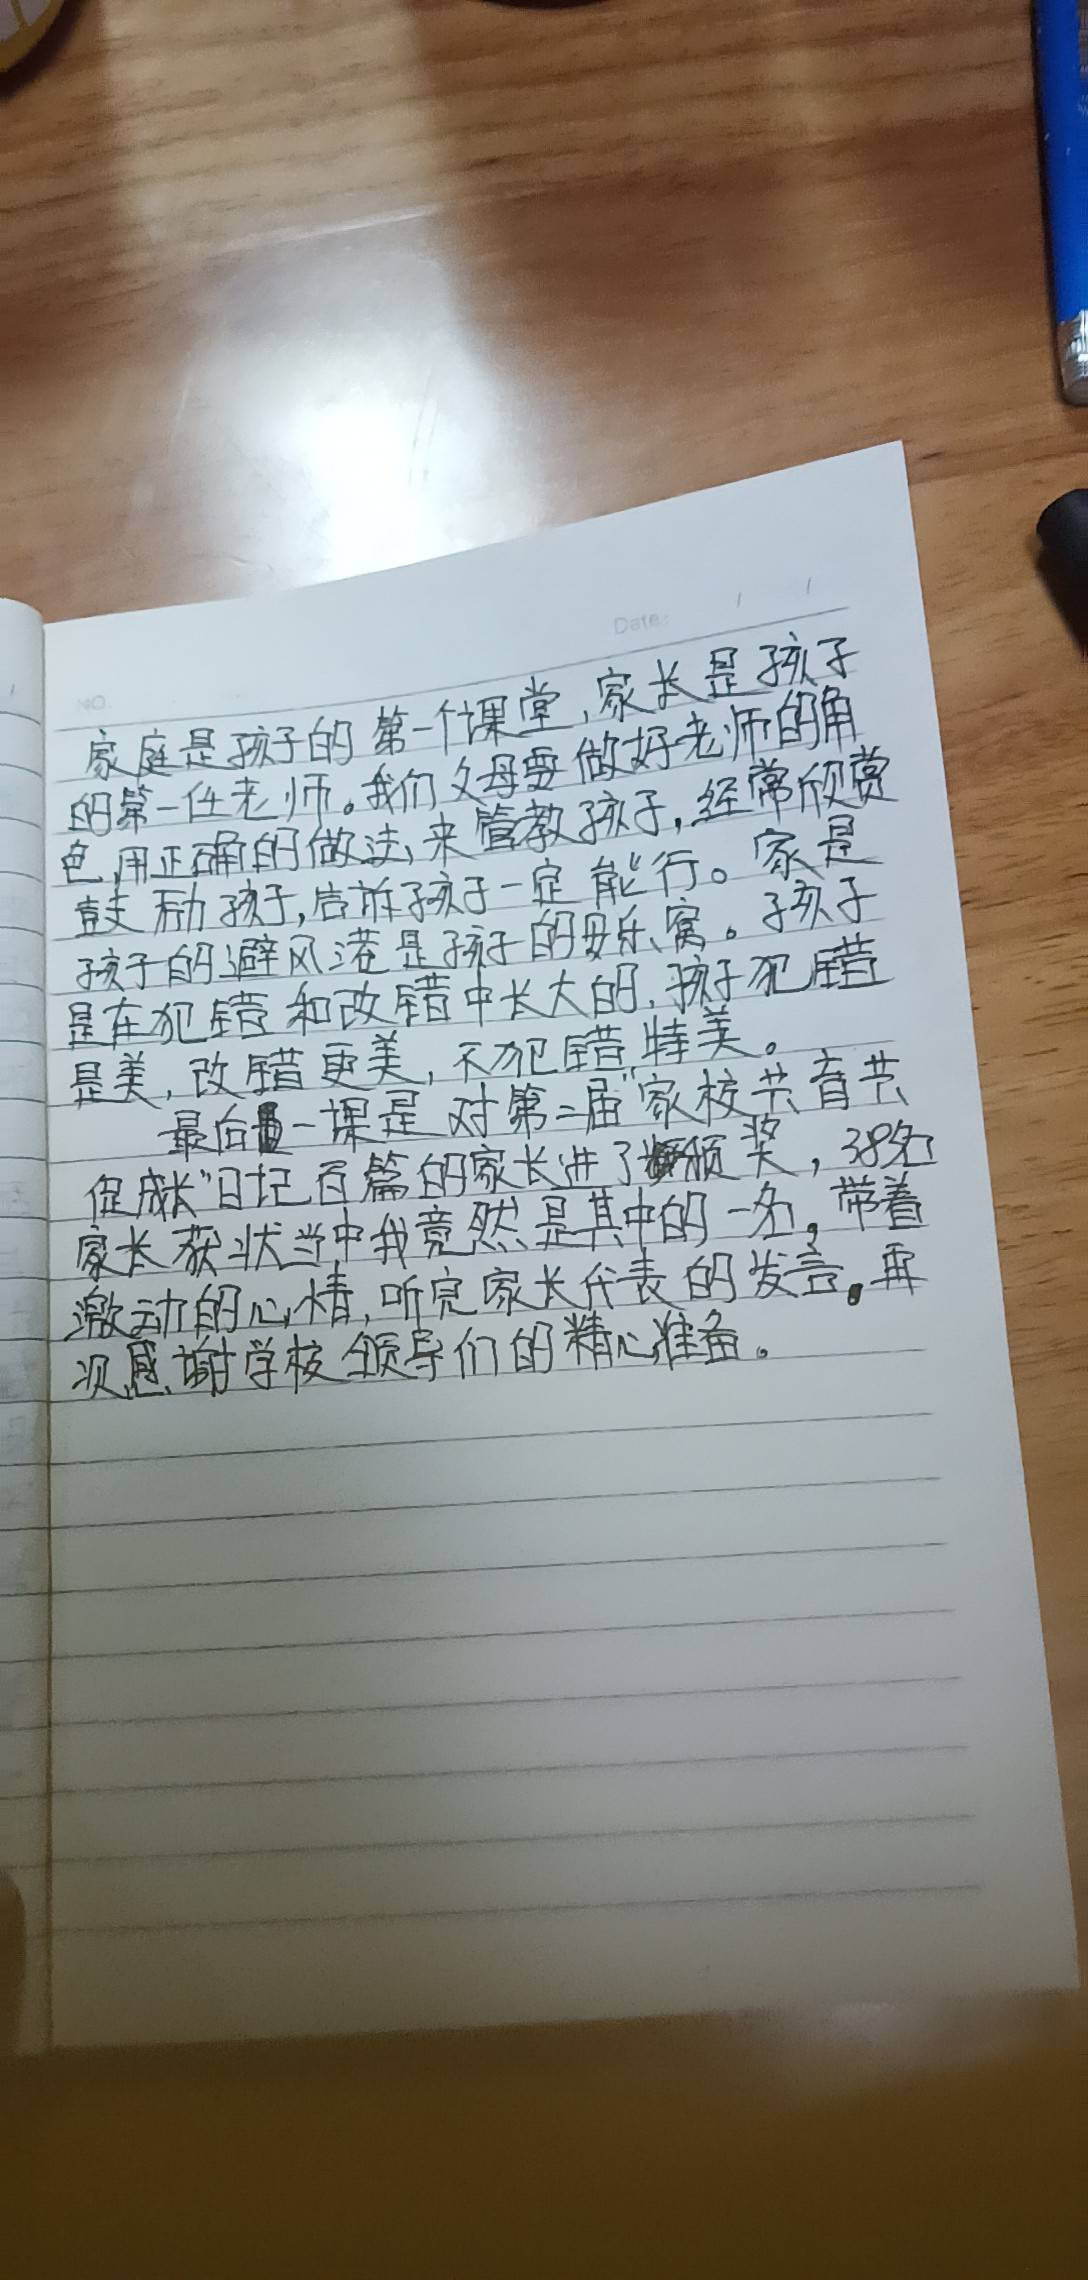 NO.
Date: / /
家庭是孩子的第一个课堂,家长是孩子
的第一任老师。我们父母要做好老师的角
色,用正确的做法,来管教孩子,经常欣赏
鼓励孩子,告诉孩子一定能行。家是
孩子的避风港是孩子的安乐窝。孩子
是在犯错和改错中长大的,孩子犯错
是美,改错更美,不犯错特美。
最后一课是对第二届"家校共育共
促成长"日记百篇的家长进了颁奖,38名
家长获状当中我竟然是其中的一名。带着
激动的心情,听完家长代表的发言。再
次感谢学校领导们的精心准备。